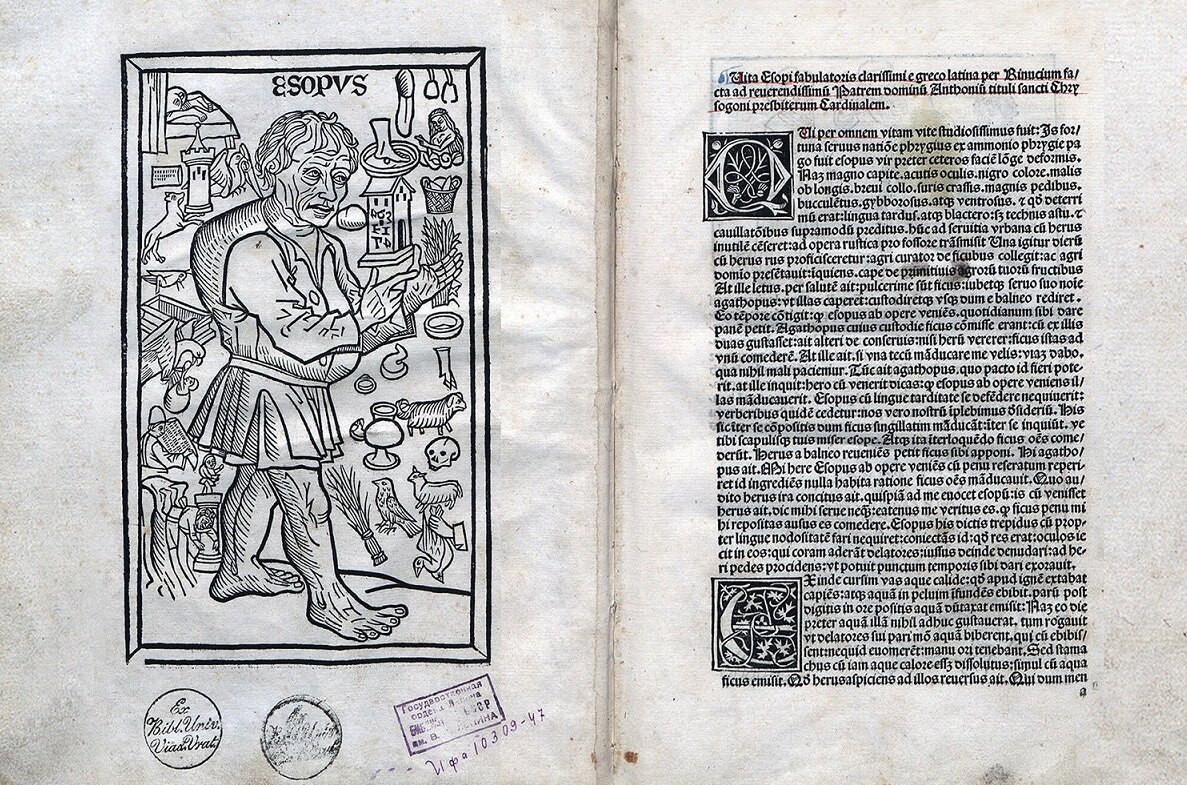 ESOPVS
Ex
Bibl. Univ.
Viad. Vrat.
Государственная
ордена Ленина
СССР
им. В. И. ЛЕНИНА
Ифа 10309-47
Uita Esopi fabulatoris clarissimi e greco latina per Rinucium fa/
cta ad reuerendissimū Patrem dominū Anthoniū tituli sancti Chry
sogoni presbiterum Cardinalem.
QUi per omnem vitam vite studiosissimus fuit: Is for/
tuna seruus natiōe phrygius ex ammonio phrygie pa
go fuit esopus vir preter ceteros faciē lōge deformis.
Naȝ magno capite. acutis oculis. nigro colore. malis
ob longis. breui collo. suris crassis. magnis pedibus.
bucculētus. gybborosus. atqȝ ventrosus. ⁊ qð deterri
mū erat: lingua tardus. atqȝ blactero: sȝ technis astu. ⁊
cauillatōibus supramodū preditus. hūc ad seruitia vrbana cū herus
inutilē cēseret: ad opera rustica pro fossore trāsmisit Una igitur dierū
cū herus rus proficisceretur: agri curator de ficubus collegit: ac agri
domio presētauit: iquiens. cape de primitiuis agrorū tuorū fructibus
At ille letus. per salutē ait: pulcerime sūt ficus: iubetqȝ seruo suo noīe
agathopus: vt illas caperet: custodiretqȝ vsqȝ dum e balneo rediret.
Eo tēpore cōtigit: ꝙ esopus ab opere veniēs. quotidianum sibi dare
panē petit. Agathopus cuius custodie ficus cōmisse erant: cū ex illis
duas gustasset: ait alteri de conseruis: nisi herū vererer: ficus istas ad
vnū comederē. At ille ait. si vna tecū māducare me velis: viaȝ dabo.
qua nihil mali paciemur. Tūc ait agathopus. quo pacto id fieri pote
rit. at ille inquit: hero cū venerit dicas: ꝙ esopus ab opere veniens il/
las māducauerit. Esopus cū lingue tarditate se defēdere nequiuerit:
verberibus quidē cedetur: nos vero nostrū īplebimus ðsideriū. His
sic īter se cōpositis dum ficus singillatim māducāt: īter se inquiūt. ve
tibi scapulisqȝ tuis miser esope. Atqȝ ita īterloquēdo ficus oēs come/
derūt. Herus a balneo reueniēs petit ficus sibi apponi. Hi agatho/
pus ait. Mi here Esopus ab opere veniēs cū penu reseratum reperi/
ret id ingrediēs nulla habita ratione ficus oēs māducauit. Quo au/
dito herus ira concitus ait. quispiā ad me euocet esopū: is cū venisset
herus ait. dic mihi serue neqȝ: eatenus me veritus es. ꝙ ficus penu mi
hi repositas ausus es comedere. Esopus his dictis trepidus cū prop/
ter lingue nodositatē fari nequiret: coniectās id: qð res erat: oculos ie
cit in eos: qui coram aderāt delatores: iussus deinde denudari: ad he/
ri pedes procidens: vt potuit punctum temporis sibi dari exorauit.
EXinde cursim vas aque calide: qð apud ignē extabat
capiēs: atqȝ aquā in peluim īfundēs ebibit. parū post
digitis in ore positis aquā dūtaxat emisit: Naȝ eo die
preter aquā illā nihil adhuc gustauerat. tum rogauit
vt delatores sui pari mō aquā biberent. qui cū ebibis/
sent: nequid euomerēt: manu ori tenebant. Sed stama
chus cū iam aque calore essȝ dissolutus: simul cū aqua
ficus emisit. Qð herus aspiciens ad illos reuersus ait. Qui dum men
a